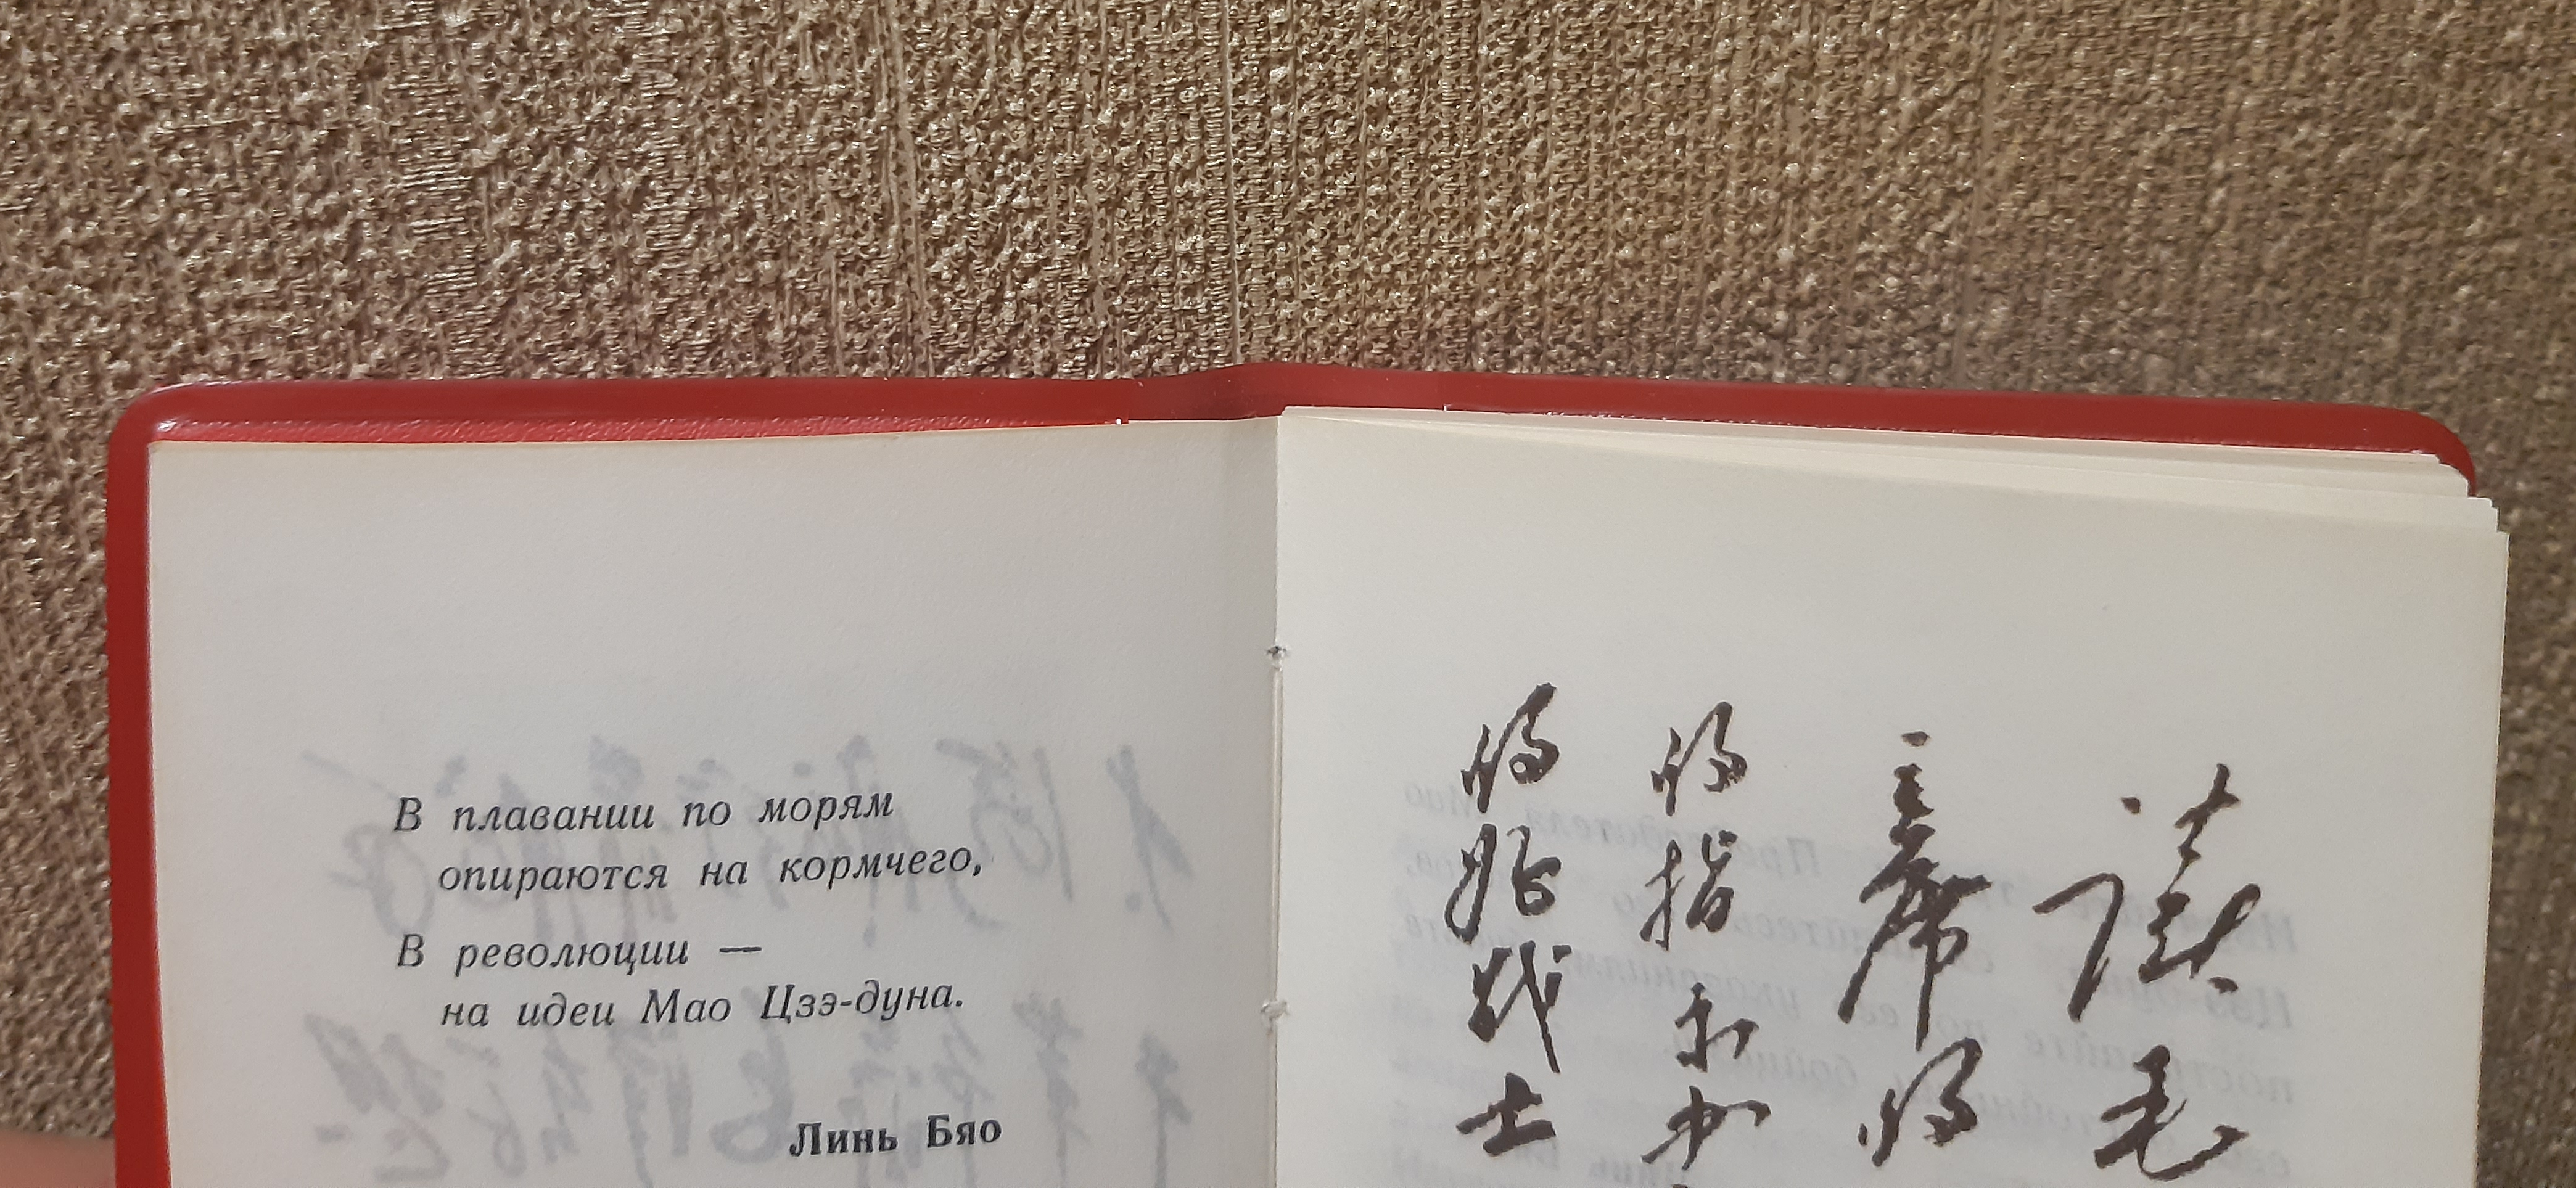 В плавании по морям
опираются на кормчего,
В революции —
на идеи Мао Цзэ-дуна.
Линь Бяо
读毛
主席的
的指示办
的好战士